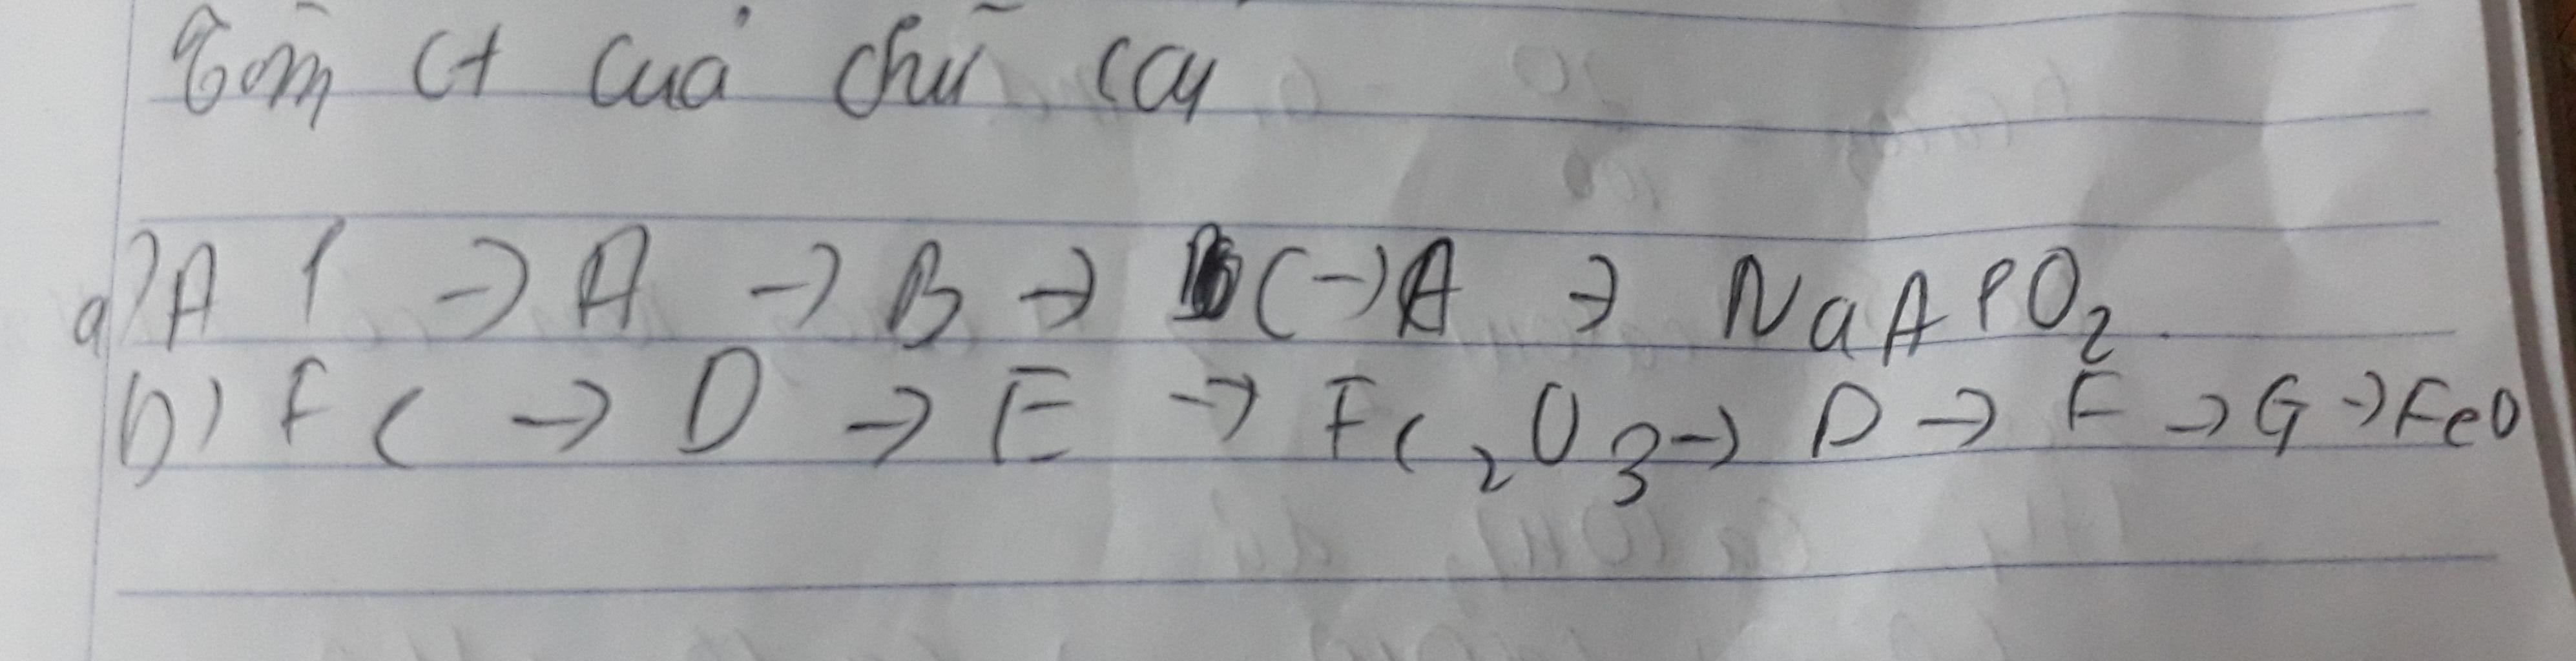 Tìm ct của chữ cái
a) Al → A → B → C → A → NaAlO2
b) Fe → D → E → Fe2O3 → D → F → G → FeO